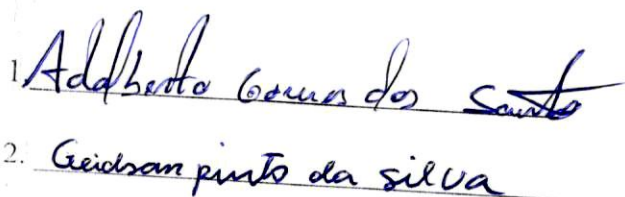 1. Adalberto Gomes dos Santos
2. Geidson pinto da silva